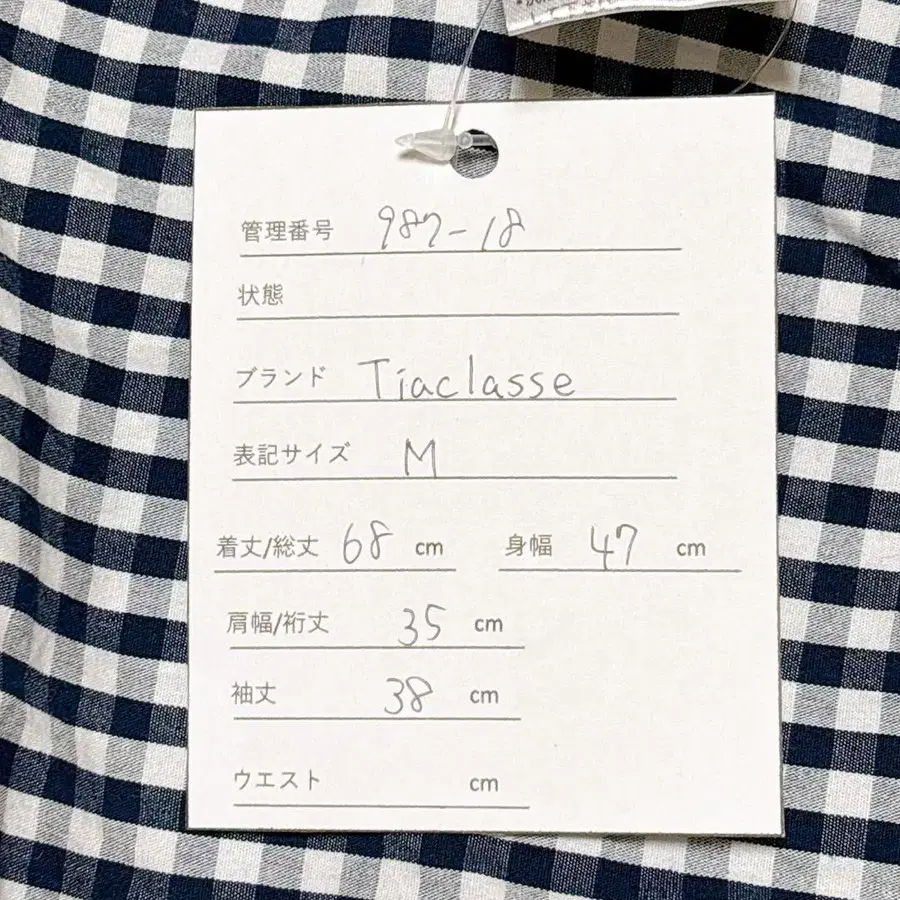 管理番号 987-18
状態
ブランド Tiaclasse
表記サイズ M
着丈/総丈 68 cm 身幅 47 cm
肩幅/裄丈 35 cm
袖丈 38 cm
ウエスト cm